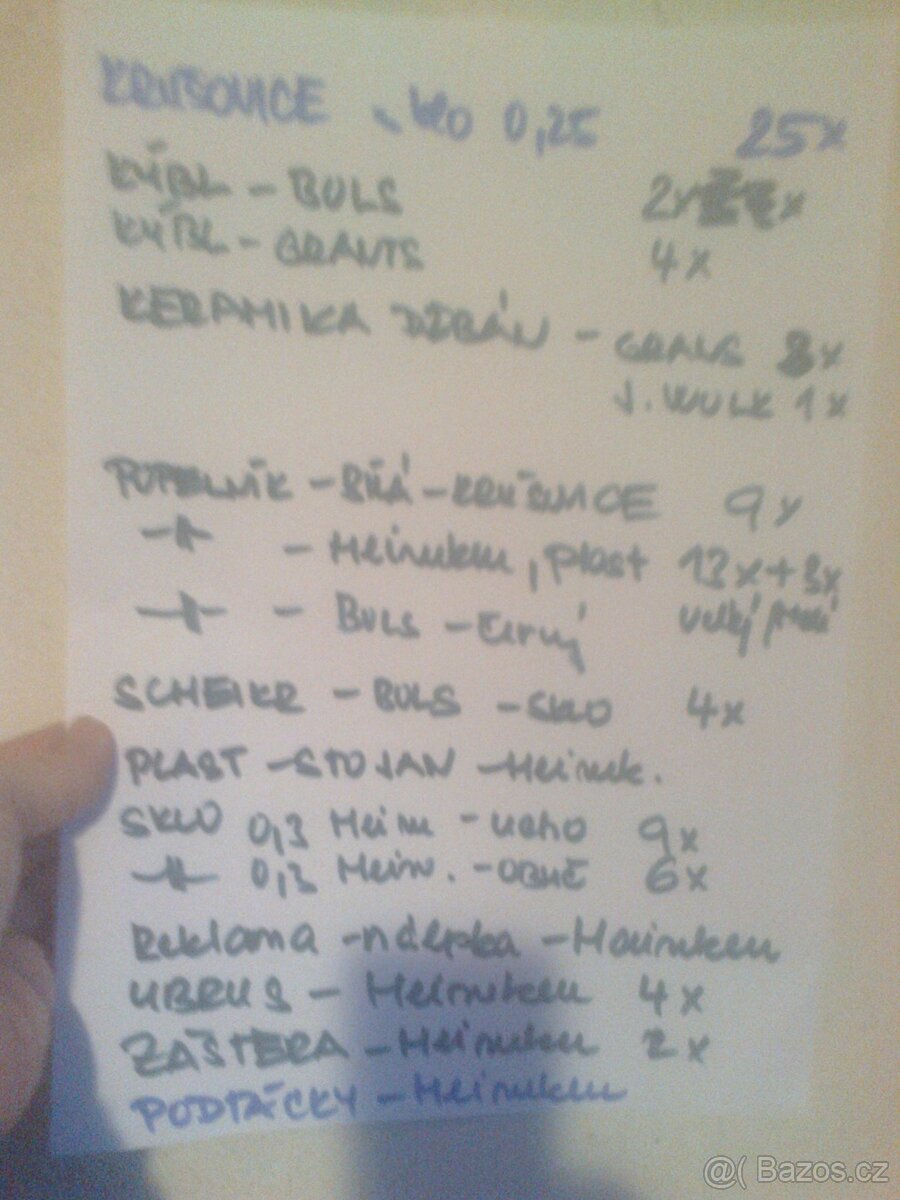 KRUŠOVICE sklo 0,25 25x
KÝBL - BULS 2x
KÝBL - GRANTS 4x
KERAMIKA DŽBÁN - GRANS 3x
J. WULK 1x
POPELNÍK - BÍLÁ - KRUŠOVICE 9x
-||- - Heineken, plast 13x+3x
-||- - BULS - černý velký
SCHEIKR - BULS - SKLO 4x
PLAST - STOJAN - Heinek.
SKLO 0,3 Hein - ucho 9x
-||- 0,3 Hein. - 6x
Reklama - nálepka - Heineken
UBRUS - Heineken 4x
ZÁSTĚRA - Heineken 2x
PODTÁCKY - Heineken
@( Bazos.cz